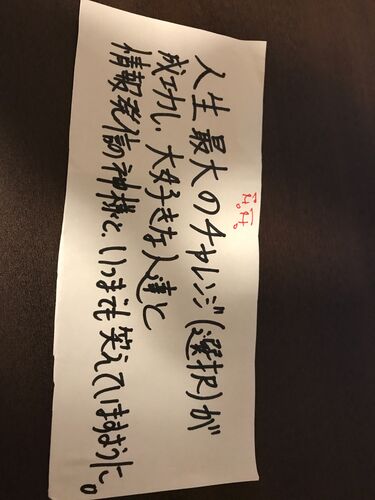 人生最大のチャレンジ(選択)が
成功し、大好きな人達と
情報発信の神様と、いつまでも笑えていますように。